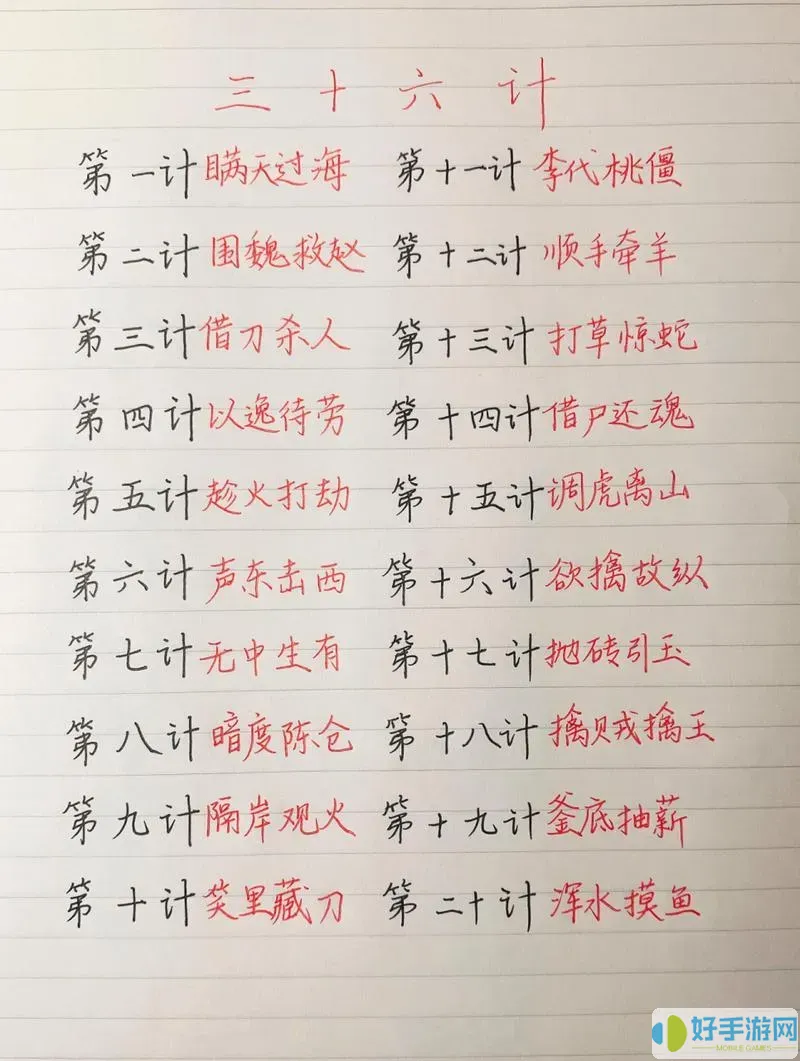 三十六计
第一计 瞒天过海 第十一计 李代桃僵
第二计 围魏救赵 第十二计 顺手牵羊
第三计 借刀杀人 第十三计 打草惊蛇
第四计 以逸待劳 第十四计 借尸还魂
第五计 趁火打劫 第十五计 调虎离山
第六计 声东击西 第十六计 欲擒故纵
第七计 无中生有 第十七计 抛砖引玉
第八计 暗度陈仓 第十八计 擒贼擒王
第九计 隔岸观火 第十九计 釜底抽薪
第十计 笑里藏刀 第二十计 浑水摸鱼
好手游网
MOBILE GAMES